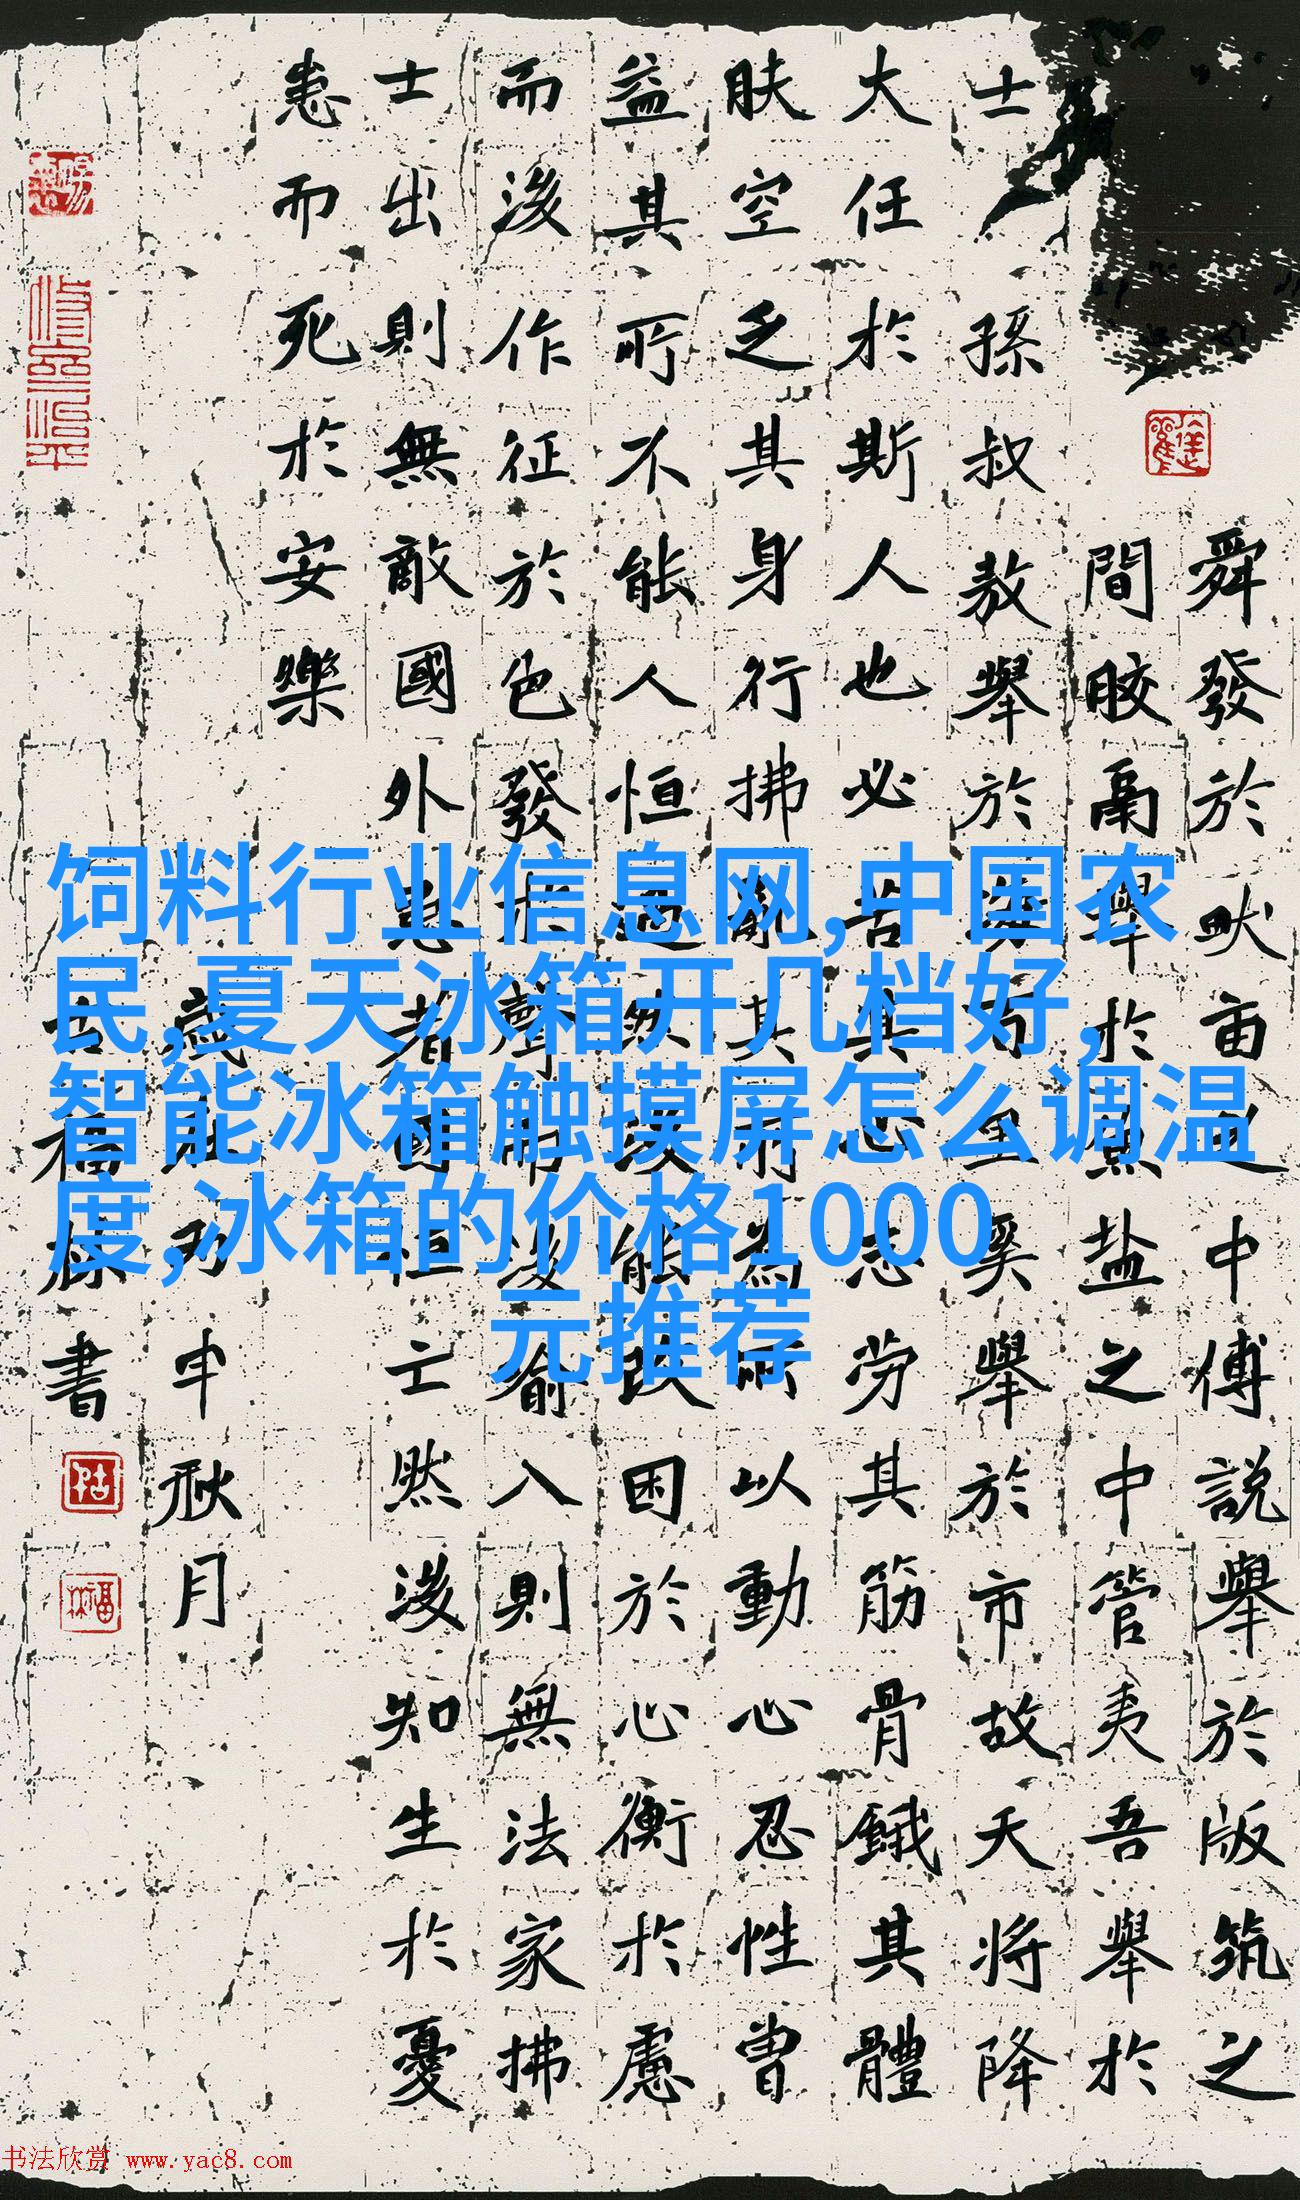 舜發於畎亩之中傅説舉於版筑之
間膠鬲舉於魚盐之中管夷吾舉於
士孫叔敖舉於海百里奚舉於市故天將降
大任於斯人也必苦其心志劳其筋骨餓其體
肤空乏其身行拂亂其所為所以動心忍性曾
益其所不能人恒過然後能改困於心衡於慮
而後作征於色發於聲而後喻入則無法家拂
士出則無敵國外患者國恒亡然後知生於憂
患而死於安樂
歲在丙申秋月
福林書
饲料行业信息网,中国农
民,夏天冰箱开几档好,
智能冰箱触摸屏怎么调温
度,冰箱的价格1000
元推荐
书法欣赏 www.yac8.com